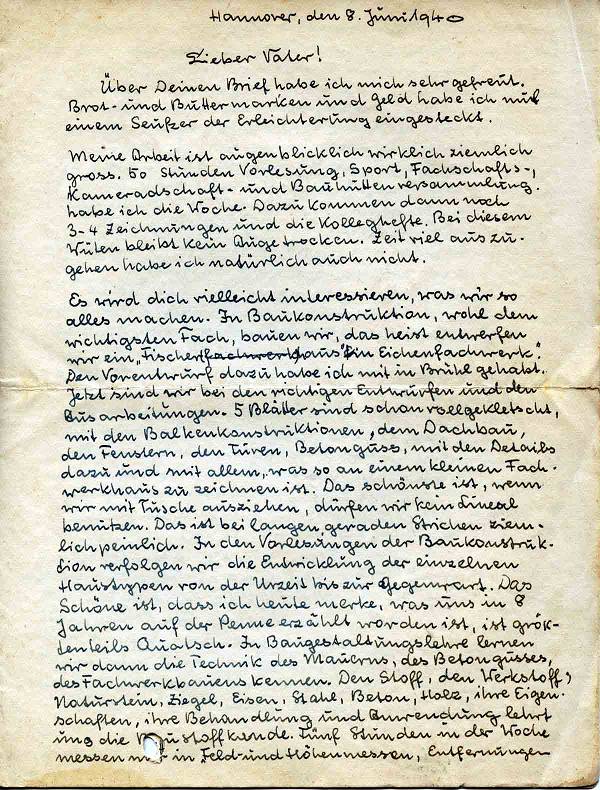 Hannover, den 8. Juni 1940
Lieber Vater!
Über Deinen Brief habe ich mich sehr gefreut.
Brot- und Buttermarken und Geld habe ich mit
einem Seufzer der Erleichterung eingesteckt.
Meine Arbeit ist augenblicklich wirklich ziemlich
gross. 50 Stunden Vorlesung, Sport, Fachschafts-,
Kameradschaft- und Bauhüttenversammlung.
habe ich die Woche. Dazu kommen dann noch
3-4 Zeichnungen und die Kolleghefte. Bei diesem
bleibt kein Auge trocken. Zeit viel auszu-
gehen habe ich natürlich auch nicht.
Es wird dich vielleicht interessieren, was wir so
alles machen. In Baukonstruktion, wohl dem
wichtigsten Fach, bauen wir, das heist entwerfen
wir ein „Fischerhaus" „Ein Eichenfachwerk".
Den Vorentwurf dazu habe ich mit in Brühl gehabt.
Jetzt sind wir bei den richtigen Entwürfen und den
Ausarbeitungen. 5 Blätter sind schon vollgekletscht,
mit den Balkenkonstruktionen, dem Dachbau,
den Fenstern, den Türen, Betonguss, mit den Details
dazu und mit allem, was so an einem kleinen Fach-
werkhaus zu zeichnen ist. Das schönste ist, wenn
wir mit Tusche ausziehen, dürfen wir kein Lineal
benutzen. Das ist bei langen geraden Strichen ziem-
lich peinlich. In den Vorlesungen der Baukonstruk-
tion verfolgen wir die Entwicklung der einzelnen
Haustypen von der Urzeit bis zur Gegenwart. Das
Schöne ist, dass ich heute merke, was uns in 8
Jahren auf der Penne erzählt worden ist, ist größ-
tenteils Quatsch. In Baugestaltungslehre lernen
wir dann die Technik des Mauerns, des Betongusses,
des Fachwerkbauens kennen. Den Stoff, den Werkstoff,
Naturstein, Ziegel, Eisen, Stahl, Beton, Holz, ihre Eigen-
schaften, ihre Behandlung und Anwendung lehrt
uns die Baustoffkunde. Fünf Stunden in der Woche
messen wir in Feld- und Höhenmessen, Entfernungen